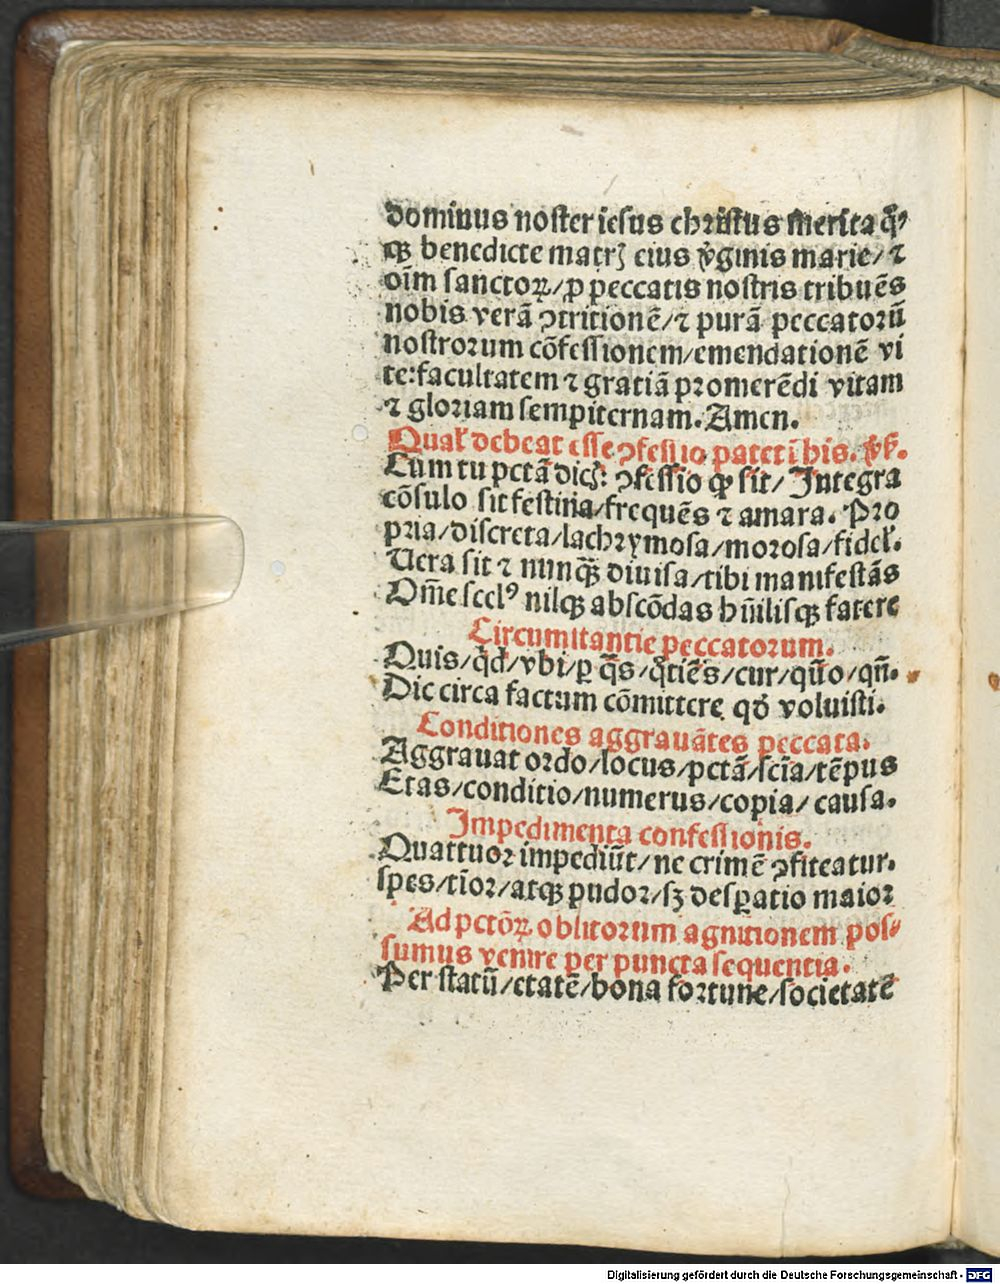 dominus noster iesus christus merita q̃⸗
qꝫ benedicte matrꝫ eius v̾ginis marie/⁊
oīm sanctoꝝ/ꝓ peccatis nostris tribuēs
nobis verā ↄtritionē/⁊ purā peccatorū
nostrorum cōfessionem/emendationē vi
te:facultatem ⁊ gratiā promerēdi vitam
⁊ gloriam sempiternam. Amen.
Qual' debeat esse ↄfessio patet ī his. v̾s.
Cum tu pctā dicꝭ: ↄfessio qꝫ sit/ Integra
cōsulo sit festina/frequēs ⁊ amara. Pro
pria/discreta/lachrymosa/morosa/fidel'.
Vera sit ⁊ nunqꝫ̃ diuisa/tibi manifestās
Om̄e scelꝰ nilqꝫ abscōdas hūilisqꝫ fatere
Circumstantie peccatorum.
Quis/qd̾/vbi/ꝑ qs̄/q̊tiēs/cur/qūo/qn̄.
Dic circa factum cōmittere qd̾ voluisti.
Conditiones aggrauātes peccata.
Aggrauat ordo/locus/pctā/scīa/tēpus
Etas/conditio/numerus/copia/ causa.
Impedimenta confessionis.
Quattuor impediūt/ne crimē ↄfiteatur.
spes/tīor/atqꝫ pudor/sꝫ desꝑatio maior
Ad pctōꝝ oblitorum agnitionem pos⸗
sumus venire per puncta sequentia.
Per statū/etatē/bona fortune/societatē
Digitalisierung gefördert durch die Deutsche Forschungsgemeinschaft - DFG